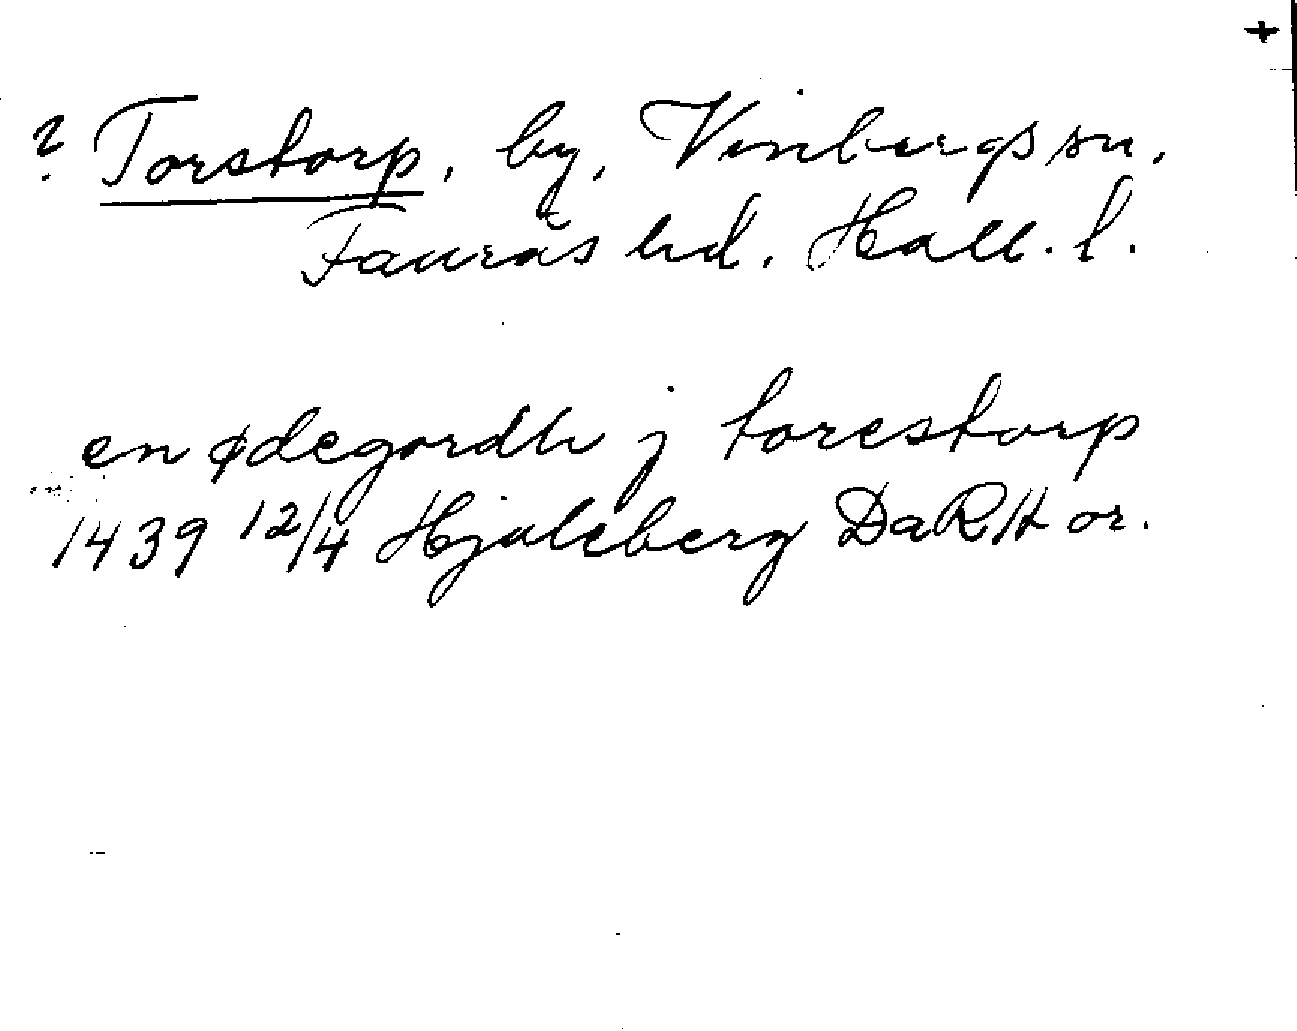 +
? Torstorp, by, Vinbergs sn,
Faurås hd. Hall. l.
en ødegordh j torestorp
1439 12/4 Hjuleberg DaRA or.